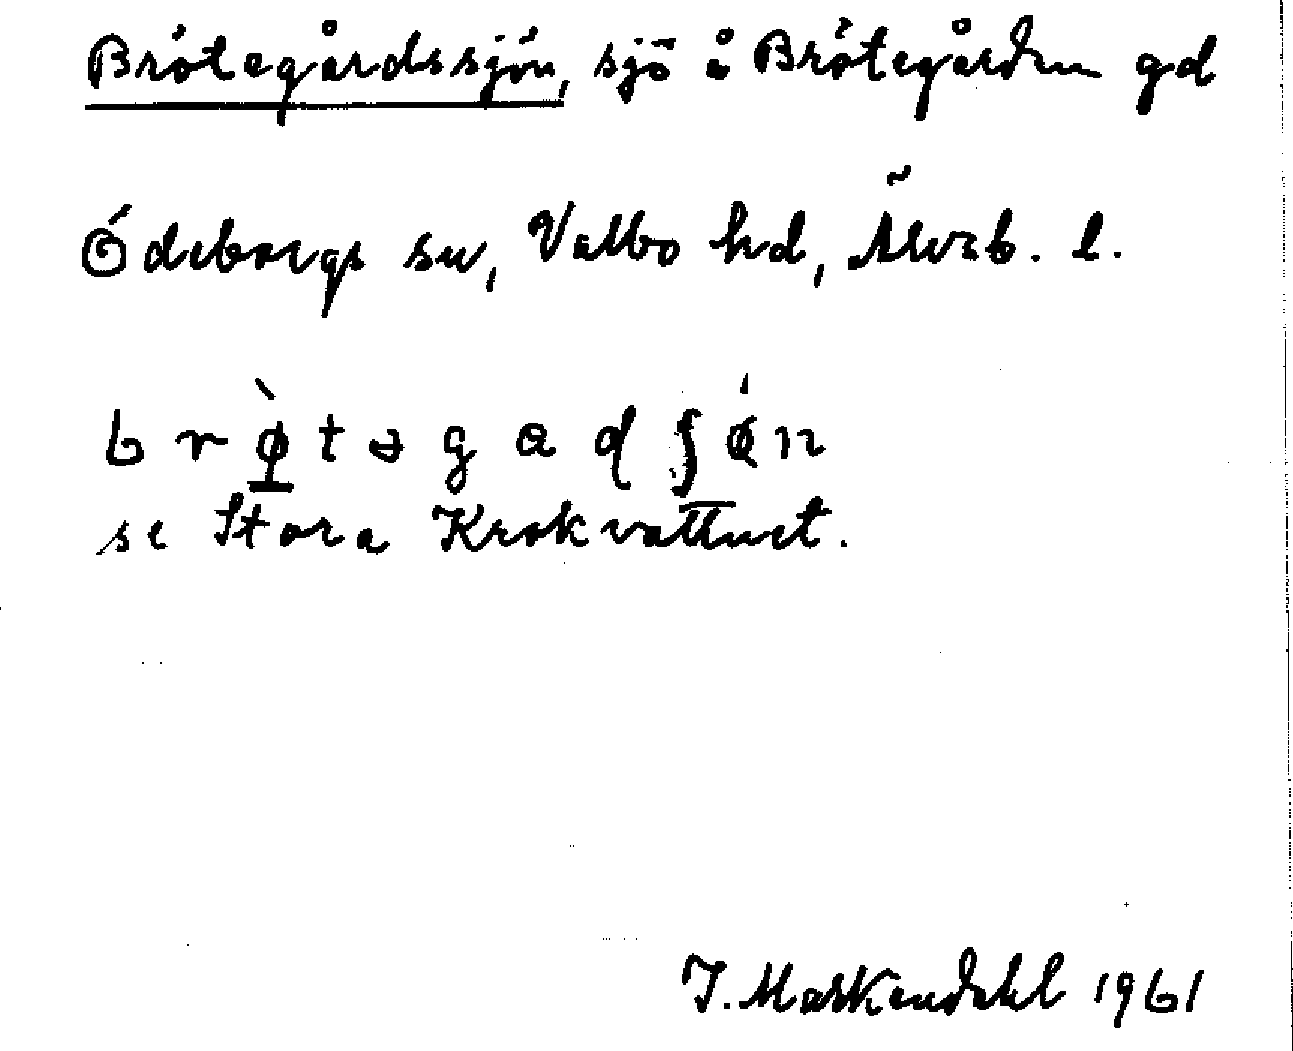 Brötegårdssjön, sjö å Brötegården gd
Ödeborgs sn, Valbo hd, Älvsb. l.
se Stora Krokvattnet.
I. Markendahl 1961